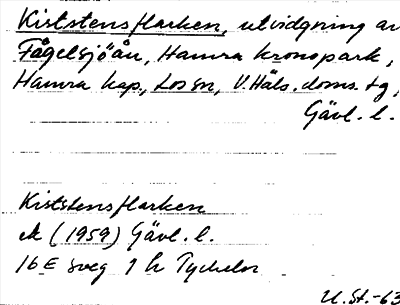 Kiststensflarken, utvidgning av
Fågelsjöån, Hamra kronopark,
Hamra kap., Los sn, V. Häls. doms. tg,
Gävl. l.
Kiststensflarken
ek (1959) Gävl. l.
16E Sveg 1 h
U.St.-63